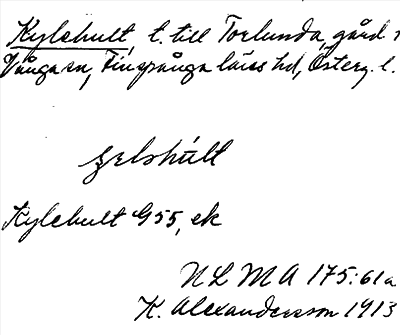 Kylehult, t. till Torlunda, gård i
Vånga sn, Finspånga läns hd, Österg. l.
Kylehult G55, ek
NLMA 175:61a
K. Alexandersson 1913